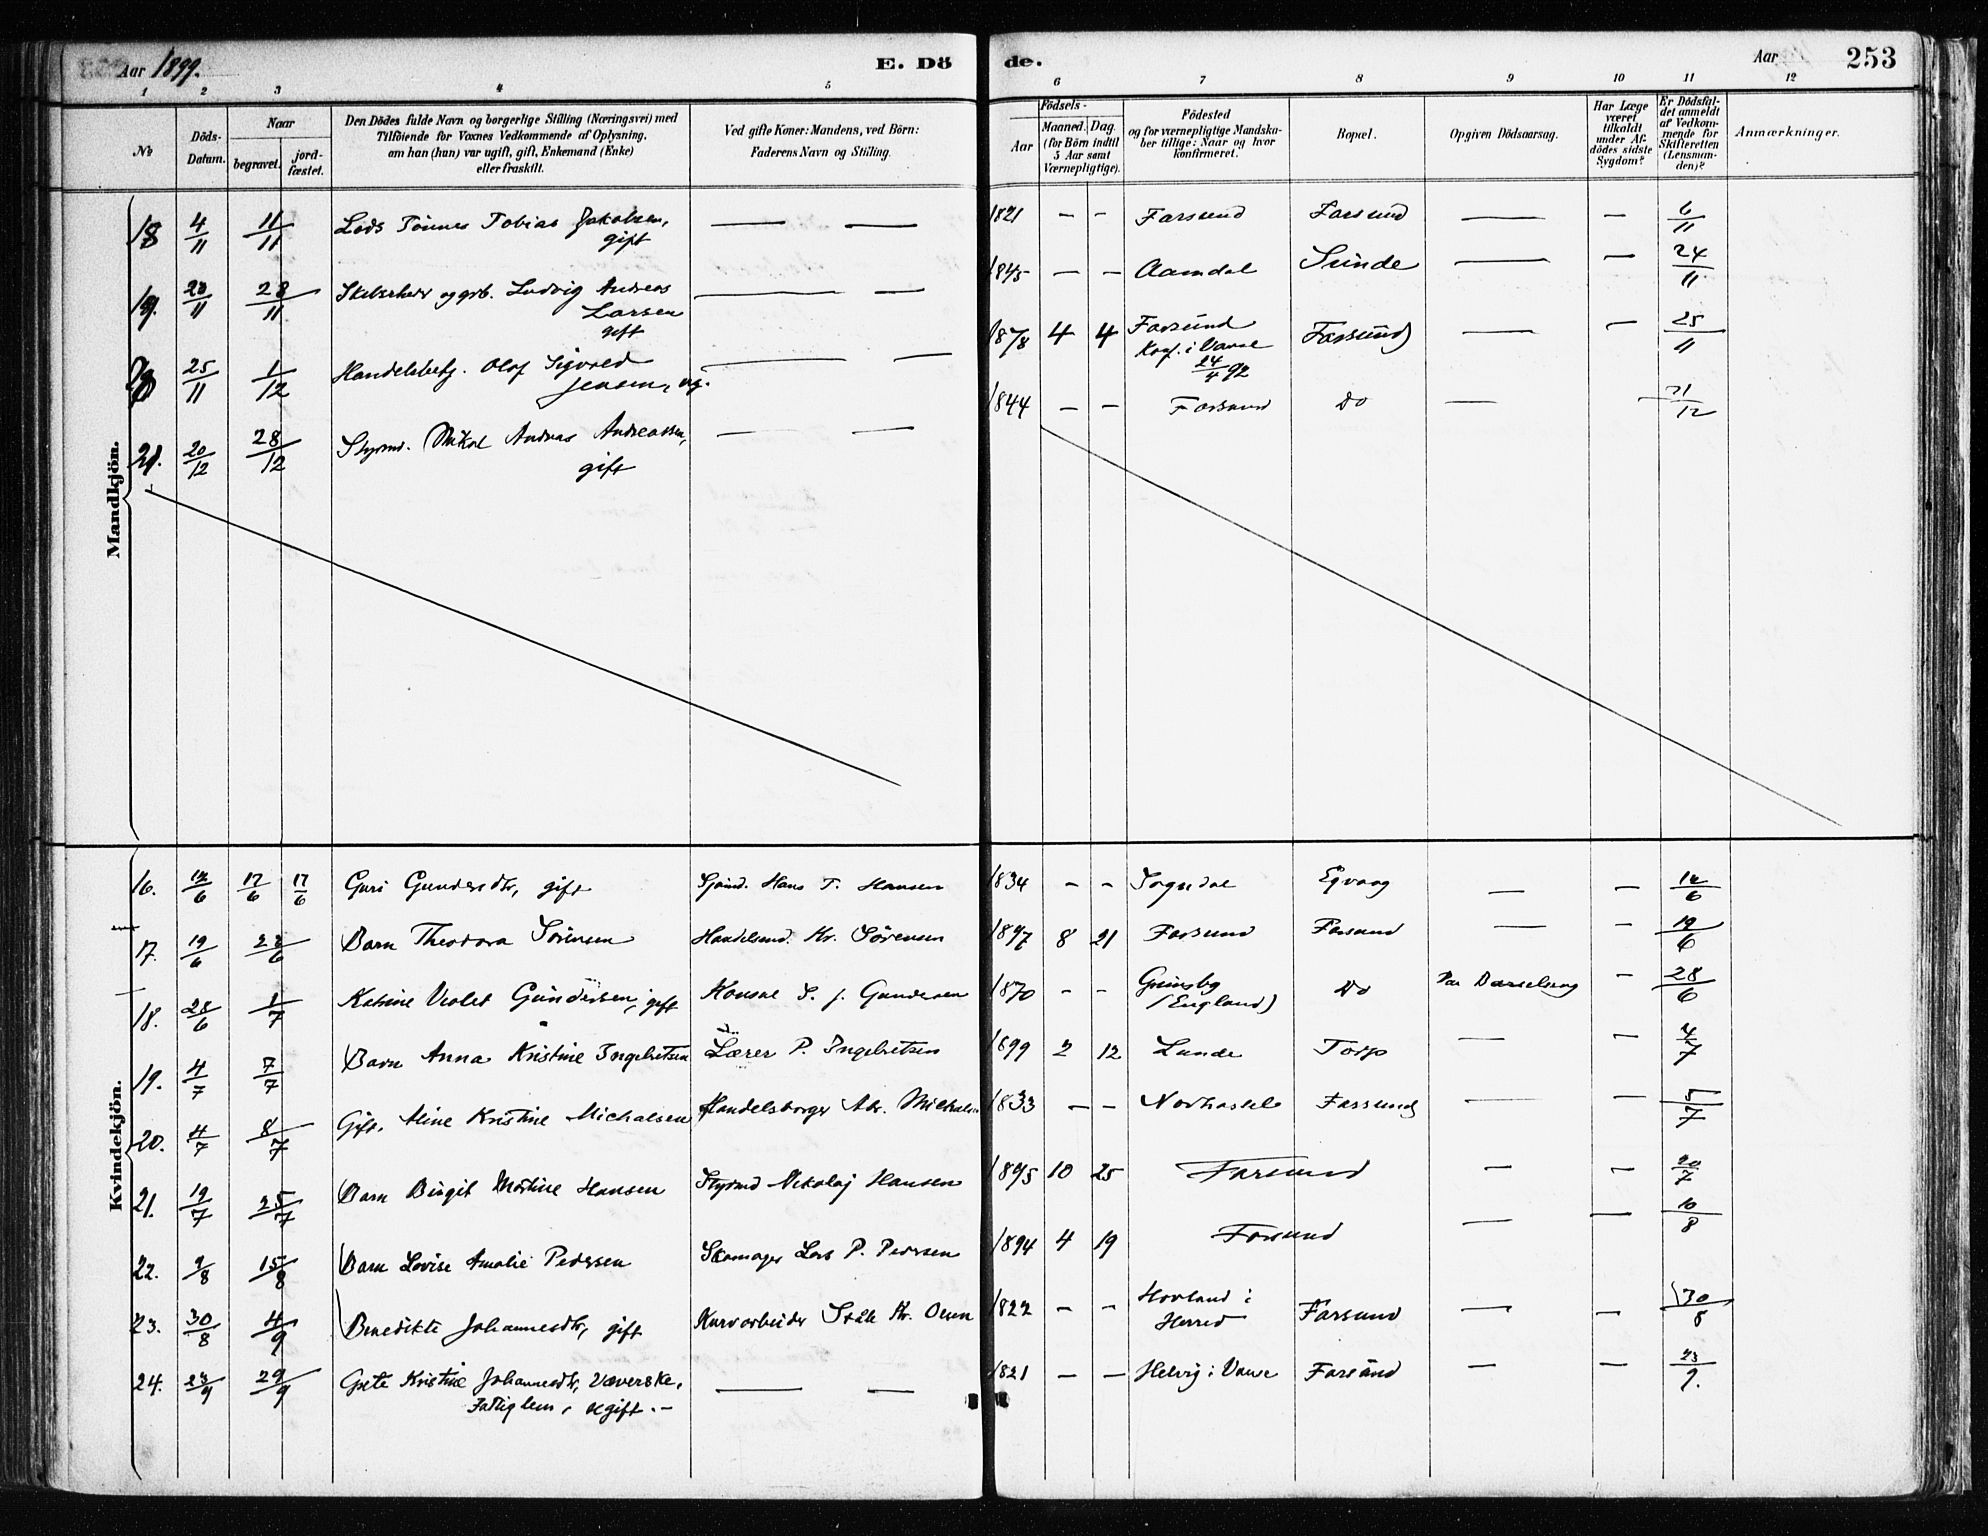 Aar 1899.
E. Dö
de.
Aar
253
1 2 3 4 5 6 7 8 9 10 11 12
No
Döds-Datum.
Naar
begravet.
jord-fæstet.
Den Dödes fulde Navn og borgerlige Stilling (Næringsvei) med
Tilföiende for Voxnes Vedkommende af Oplysning,
om han (hun) var ugift, gift, Enkemand (Enke)
eller fraskilt.
Ved gifte Koner: Mandens, ved Börn:
Faderens Navn og Stilling.
Födsels-
Aar
Maaned. Dag.
(for Börn indtil
5 Aar samt
Værnepligtige).
Födested
og for værnepligtige Mandska-
ber tillige: Naar og hvor
konfirmeret.
Bopæl.
Opgiven Dödsaarsag.
Har Læge
været
tilkaldt
under Af-
dödes sidste
Sygdom?
Er Dödsfal-
det anmeldt
af Vedkom-
mende for
Skifteretten
(Lensman-
den)?
Anmærkninger.
Mandkjön.
18 4/11 11/11 Lods Tönnes Tobias Jakobsen, gift — — 1821 — — Farsund Farsund — — 6/11
19. 11 28/11 Ludvig Andreas Larsen gift — — 1845 — — Aamdal Sunde — — 24/11
20 25/11 1/12 Handelsbetj. Olaf Sigvald Jensen, ug. — — 1878 4 4 Farsund Konf. i Vanse 24/4 92 Farsund — — 25/11
21. 20/12 28/12 Styrmd. Mikal Andreas Andreassen, gift — — 1844 — — Farsund Do — 21/12
Kvindekjön.
16. 12/6 17/6 17/6 Guri Gundersdtr, gift Hans T. Hansen 1834 — — Sogndal Egvaag — — 12/6
17. 19/6 23/6 Barn Theodora Sörensen Handelsmd. Kr. Sörensen 1897 8 21 Farsund Farsund — — 19/6
18. 28/6 1/7 Katrine Violet Gundersen, gift Konsul S. J. Gundersen 1870 — — Grimsby (England) Do Barselseng — 28/6
19. 4/7 7/7 Barn Anna Kristine Ingebretsen Lærer P. Ingebretsen 1899 2 12 Lunde Torp — — 4/7
20. 4/7 8/7 Gift. Aline Kristine Michalsen Handelsborger Abr. Michalsen 1833 — — Norhassel Farsund — — 5/7
21. 19/7 25/7 Barn Birgit Martine Hansen Styrmd Nikolaj Hansen 1895 10 25 Farsund — — 20/7
22. 9/8 15/8 Barn Lovise Amalie Pedersen Skomager Lars P. Pedersen 1894 4 19 Farsund — — 10/8
23. 30/8 4/9 Benedikte Johannesdtr, gift Kurvarbeider Ståle Kr. Olsen 1822 — — Hovland i Herred Farsund — — 30/8
24. 23/9 29/9 Grete Kristine Johannesdtr, Væverske, Fattiglem, ugift. — — — 1821 — — Helvig i Vanse Farsund — — 23/9.